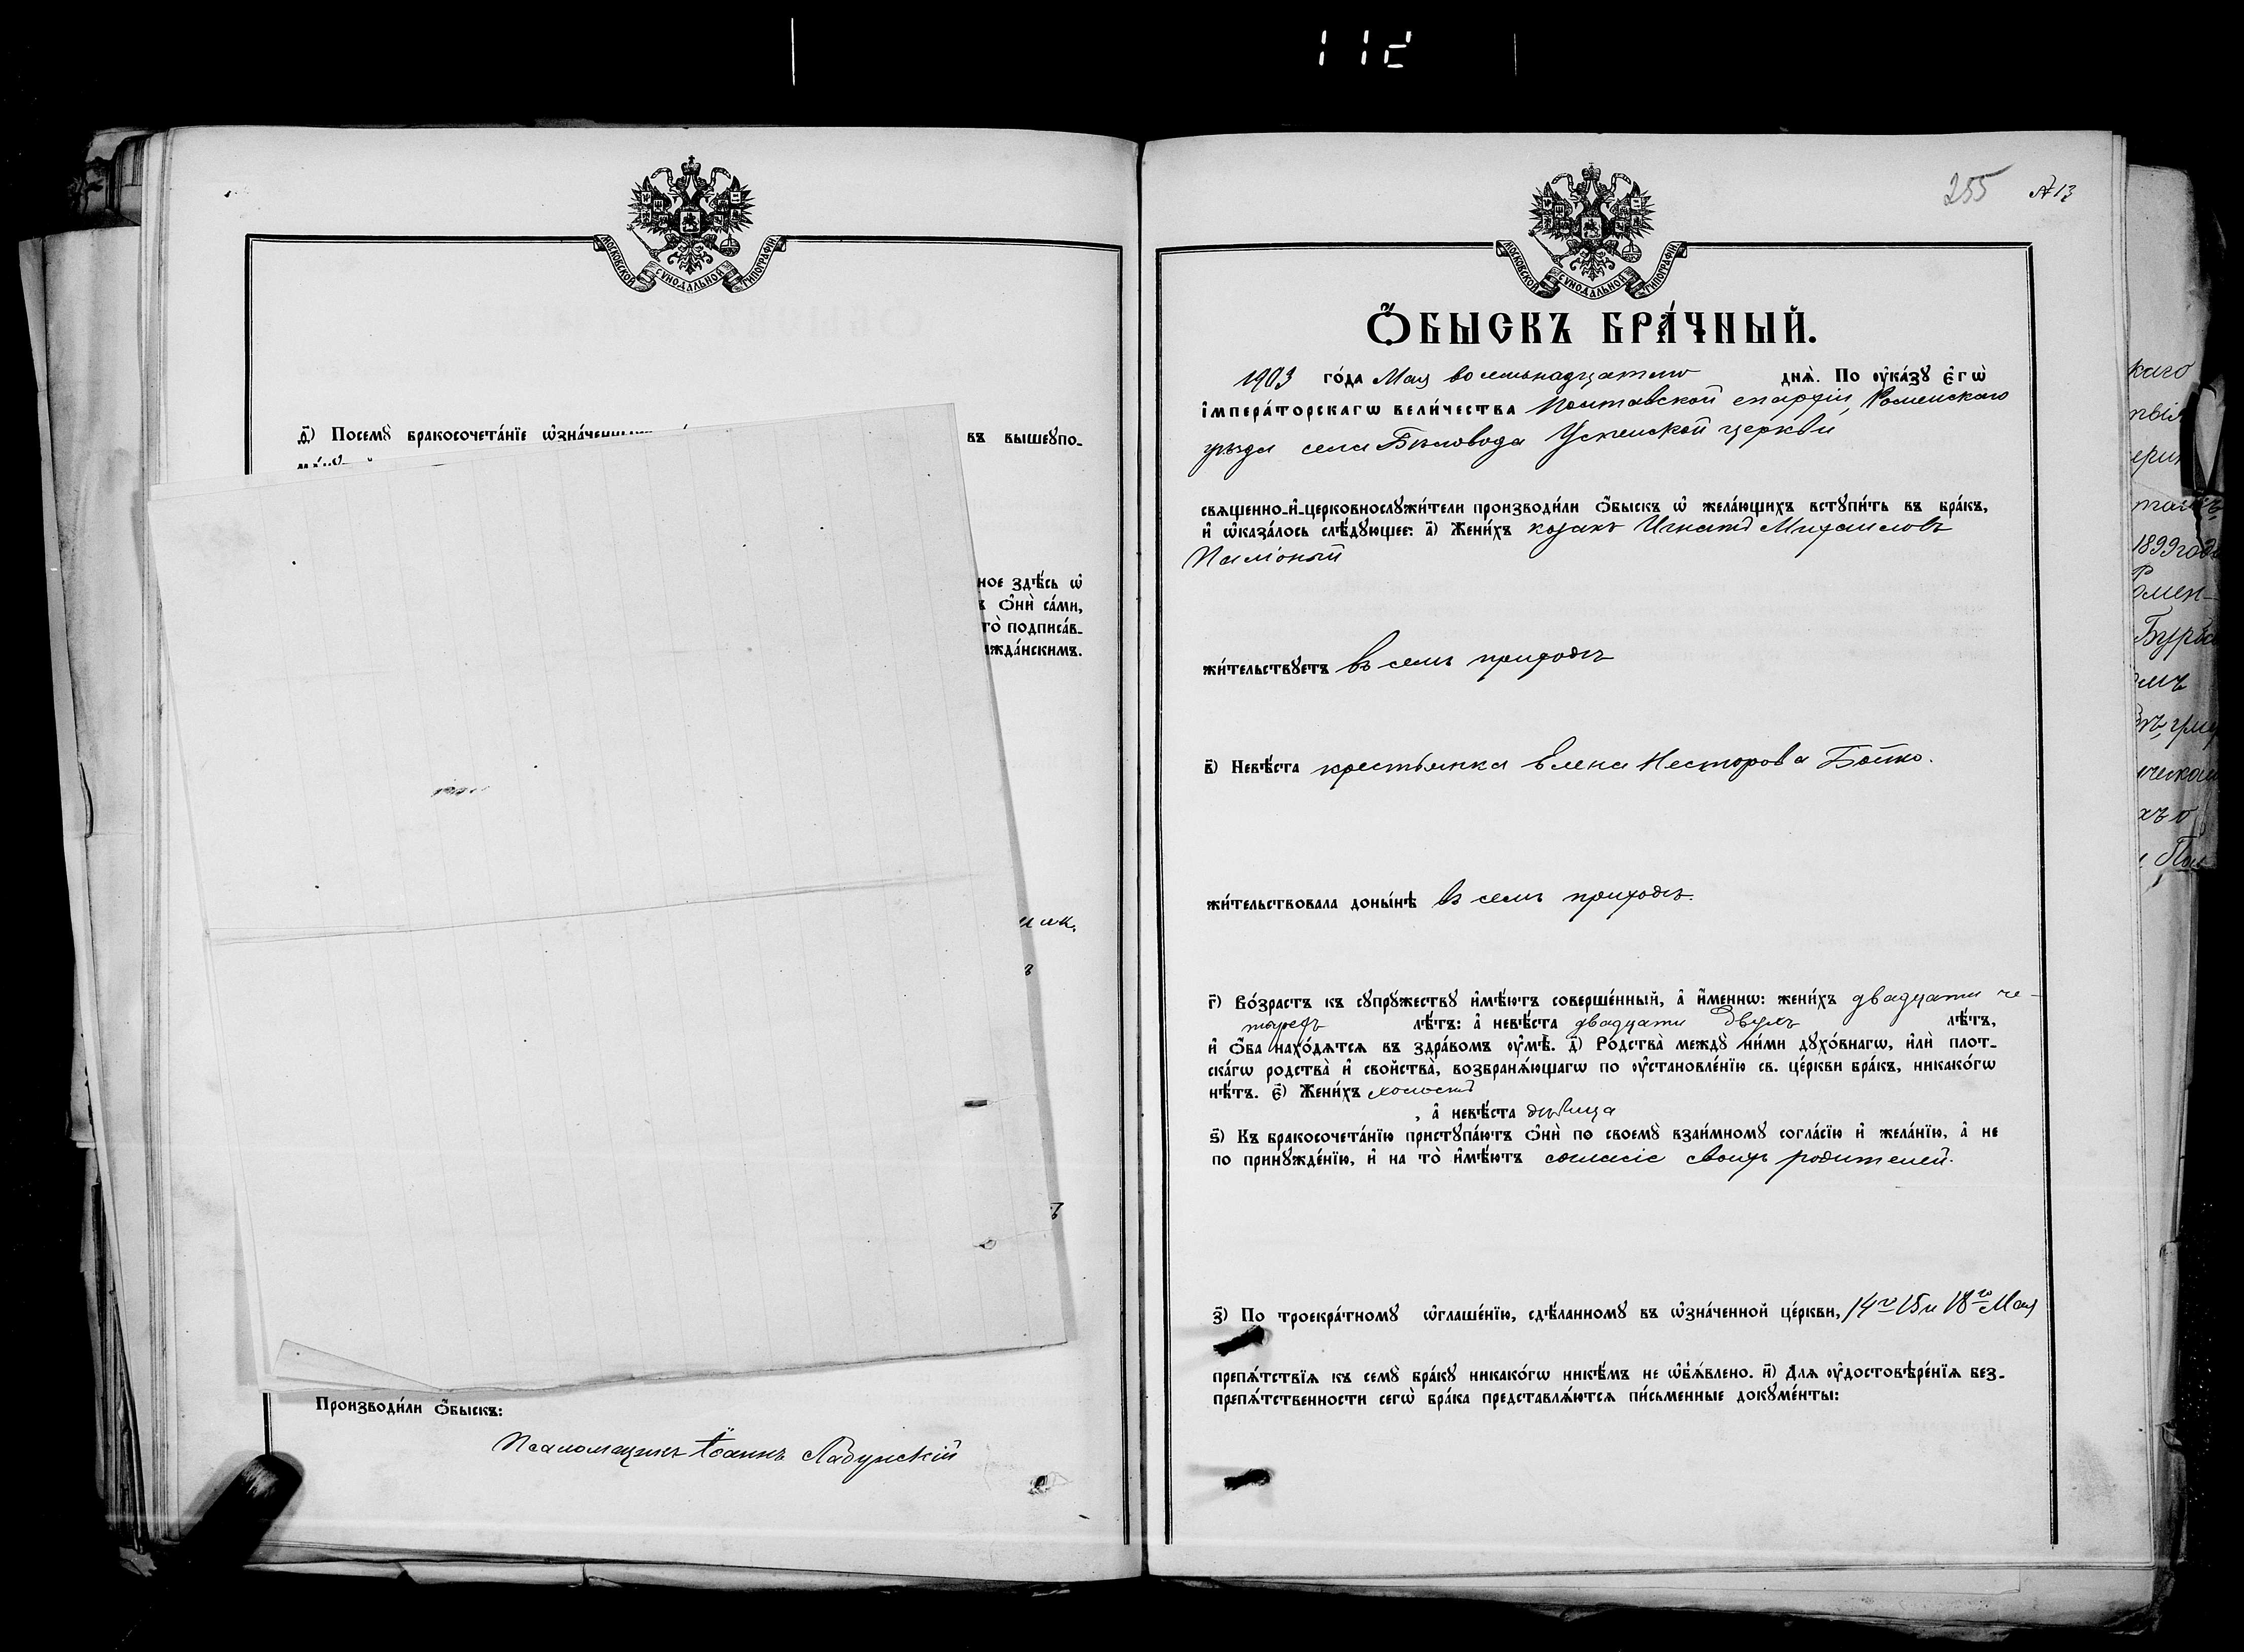 МОСКОВСКОЙ СѴНОДАЛЬНОЙ ТИПОГРАФІИ
д҃) Посемꙋ̀ бракосочета́нїе ѡ҆зна́ченны
въ вышеꙋпо-
ное здѣ́сь ѡ҆
ѻ҆нѝ са́ми,
то̀ подписа́в-
ажда́нскимъ.
Производи́ли ѻ҆́быскъ:
Псаломщикъ Іоаннъ Лабунскій
112
255 №13
МОСКОВСКОЙ СѴНОДАЛЬНОЙ ТИПОГРАФІИ
Ѻ҆́БЫСКЪ БРА́ЧНЫЙ.
1903 го́да Мая восемьнадцатаго днѧ̀. По ᲂу҆ка́зꙋ є҆гѡ̀
і҆мпера́торскагѡ вели́чества Полтавской епархіи, Роменскаго
уѣзда села Бѣловода Успенской церкви
свѧщенно-и҆-церковнослꙋжи́тели производи́ли ѻ҆́быскъ ѡ҆ жела́ющихъ встꙋпи́ть въ бра́къ,
и҆ ѡ҆каза́лось слѣ́дꙋющее: а҃) Жени́хъ козакъ Игнатій Михаиловъ
жи́тельствꙋетъ въ семъ приходѣ
в҃) Невѣ́ста крестьянка Елена Несторова Бойко.
жи́тельствовала доны́нѣ въ семъ приходѣ.
г҃) Во́зрастъ къ сꙋпрꙋ́жествꙋ и҆мѣ́ютъ соверше́нный, а҆ и҆́меннѡ: жени́хъ двадцати че-
тырехъ лѣ́тъ: а҆ невѣ́ста двадцати двухъ лѣ́тъ,
и҆ ѻ҆́ба нахо́дѧтсѧ въ здра́вомъ ᲂу҆мѣ̀. д҃) Родства̀ междꙋ̀ ни́ми дꙋхо́внагѡ, и҆лѝ плот-
ска́гѡ родства̀ и҆ свойства̀, возбранѧ́ющагѡ по ᲂу҆становле́нїю св. це́ркви бра́къ, никако́гѡ
нѣ́тъ. є҃) Жени́хъ холостъ
, а҆ невѣ́ста дѣвица
ѕ҃) Къ бракосочета́нїю пристꙋпа́ютъ ѻ҆нѝ по своемꙋ̀ взаи́мномꙋ согла́сїю и҆ жела́нїю, а҆ не
по принꙋжде́нїю, и҆ на то̀ и҆мѣ́ютъ согласіе своихъ родителей.
з҃) По троекра́тномꙋ ѡ҆глаше́нїю, сдѣ́ланномꙋ въ ѡ҆зна́ченной це́ркви, 14го 15 и 18го Мая
препѧ́тствїѧ къ семꙋ̀ бра́кꙋ никако́гѡ никѣ́мъ не ѡ҆б̾ѧ́влено. и҃) Длѧ ᲂу҆достовѣре́нїѧ без-
препѧ́тственности сегѡ̀ бра́ка представлѧ́ютсѧ пи́сьменные докꙋме́нты:
каго
1899 года
омен-